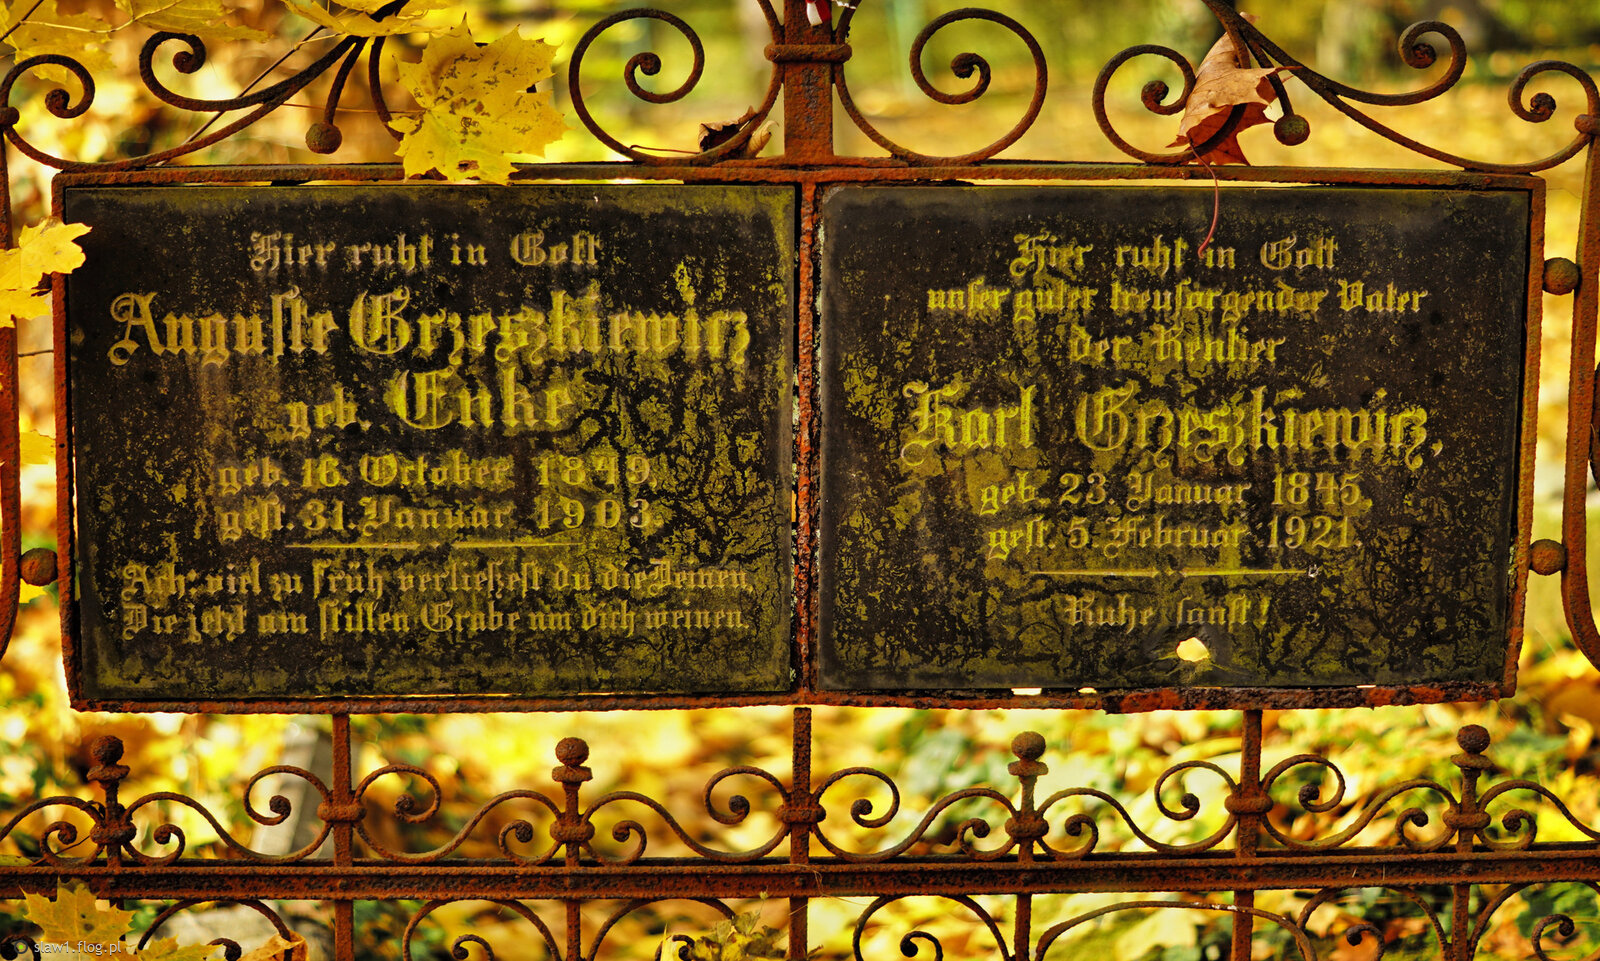 Hier ruht in Gott
Auguste Grzeszkiewicz
geb. Enke
geb. 16. October 1849.
gest. 31. Januar 1903.
Ach, viel zu früh verließest du die Deinen,
Die jetzt am stillen Grabe um dich weinen.
Hier ruht in Gott
unser guter treusorgender Vater
der Rentier
Karl Grzeszkiewicz,
geb. 23. Januar 1845.
gest. 5. Februar 1921.
Ruhe sanft!
slaw1.flog.pl